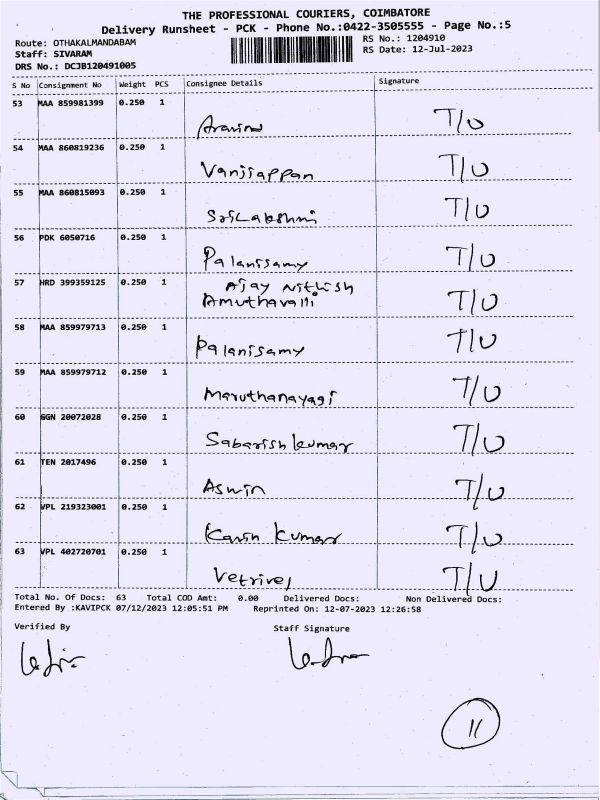 THE PROFESSIONAL COURIERS, COIMBATORE
Delivery Runsheet - PCK - Phone No.:0422-3505555 - Page No.:5
Route: OTHAKALMANDABAM RS No.: 1204910
Staff: SIVARAM RS Date: 12-Jul-2023
DRS No.: DCJB120491005
S No Consignment No Weight PCS Consignee Details Signature
53 MAA 859981399 0.250 1
Aravind T/O
54 MAA 860819236 0.250 1
Vanjiappan T/U
55 MAA 860815093 0.250 1
SriLakshmi T/U
56 PDK 6050716 0.250 1
Palanisamy T/U
57 HRD 399359125 0.250 1 Ajay Nithish
Amuthavalli T/U
58 MAA 859979713 0.250 1
Palanisamy T/U
59 MAA 859979712 0.250 1
Maruthanayagi T/U
60 GGN 20072028 0.250 1
Sabarish kumar T/U
61 TEN 2017496 0.250 1
Aswin T/U
62 VPL 219323001 0.250 1
Kavin Kumar T/U
63 VPL 402720701 0.250 1
Vetrivel T/U
Total No. Of Docs: 63 Total COD Amt: 0.00 Delivered Docs: Non Delivered Docs:
Entered By :KAVIPCK 07/12/2023 12:05:51 PM Reprinted On: 12-07-2023 12:26:58
Verified By Staff Signature
11